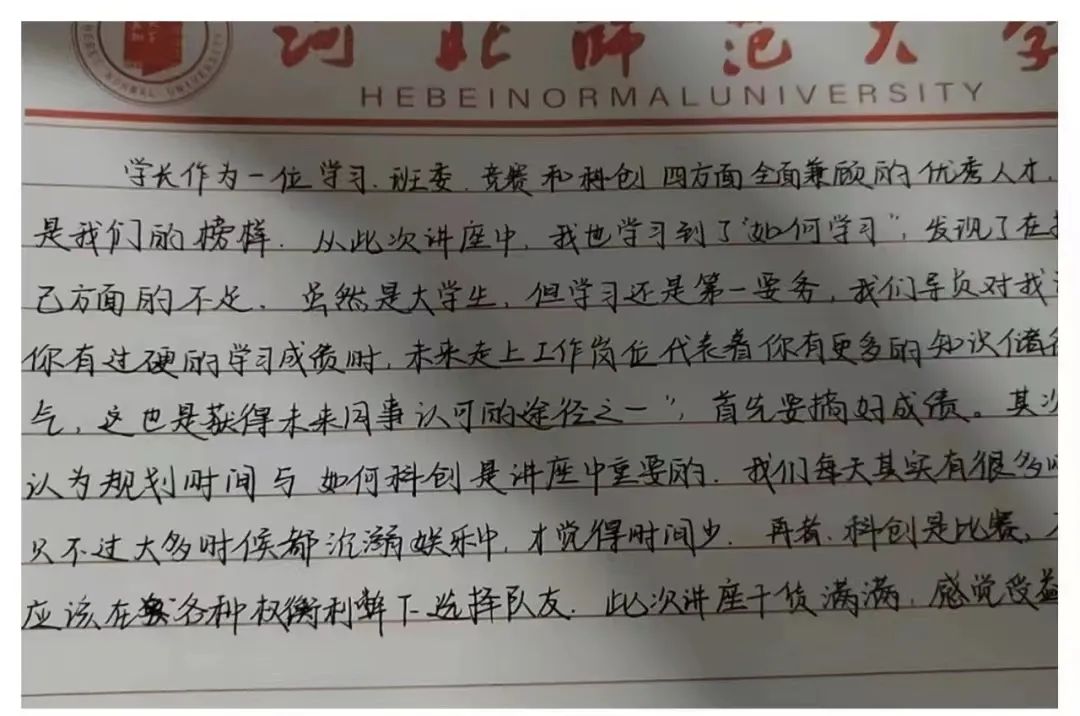 河北师范大学
HEBEINORMALUNIVERSITY
学长作为一位学习.班委.竞赛和科创四方面全面兼顾的优秀人才,
是我们的榜样.从此次讲座中,我也学习到了"如何学习",发现了在
己方面的不足.虽然是大学生,但学习还是第一要务,我们导员对我
你有过硬的学习成质时,未来走上工作岗位代表着你有更多的知识储
气,这也是获得未来同事认可的途径之一",首先要搞好成绩。其次
认为规划时间与如何科创是讲座中重要的.我们每天其实有很多
只不过大多时候都沉溺娱乐中,才觉得时间少.再者.科创是比赛,
应该在各种权衡利弊下选择队友.此次讲座干货满满,感觉受益